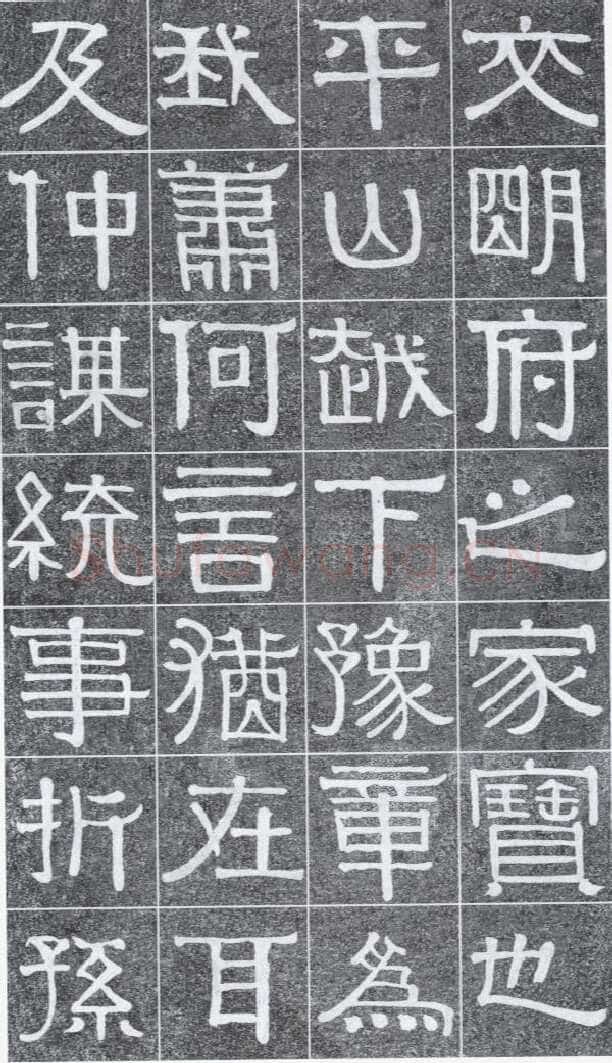 文明府之家寶也
平山越下豫章為
我蕭何言猶在耳
及仲謀統事折孫
Shufawang.CN